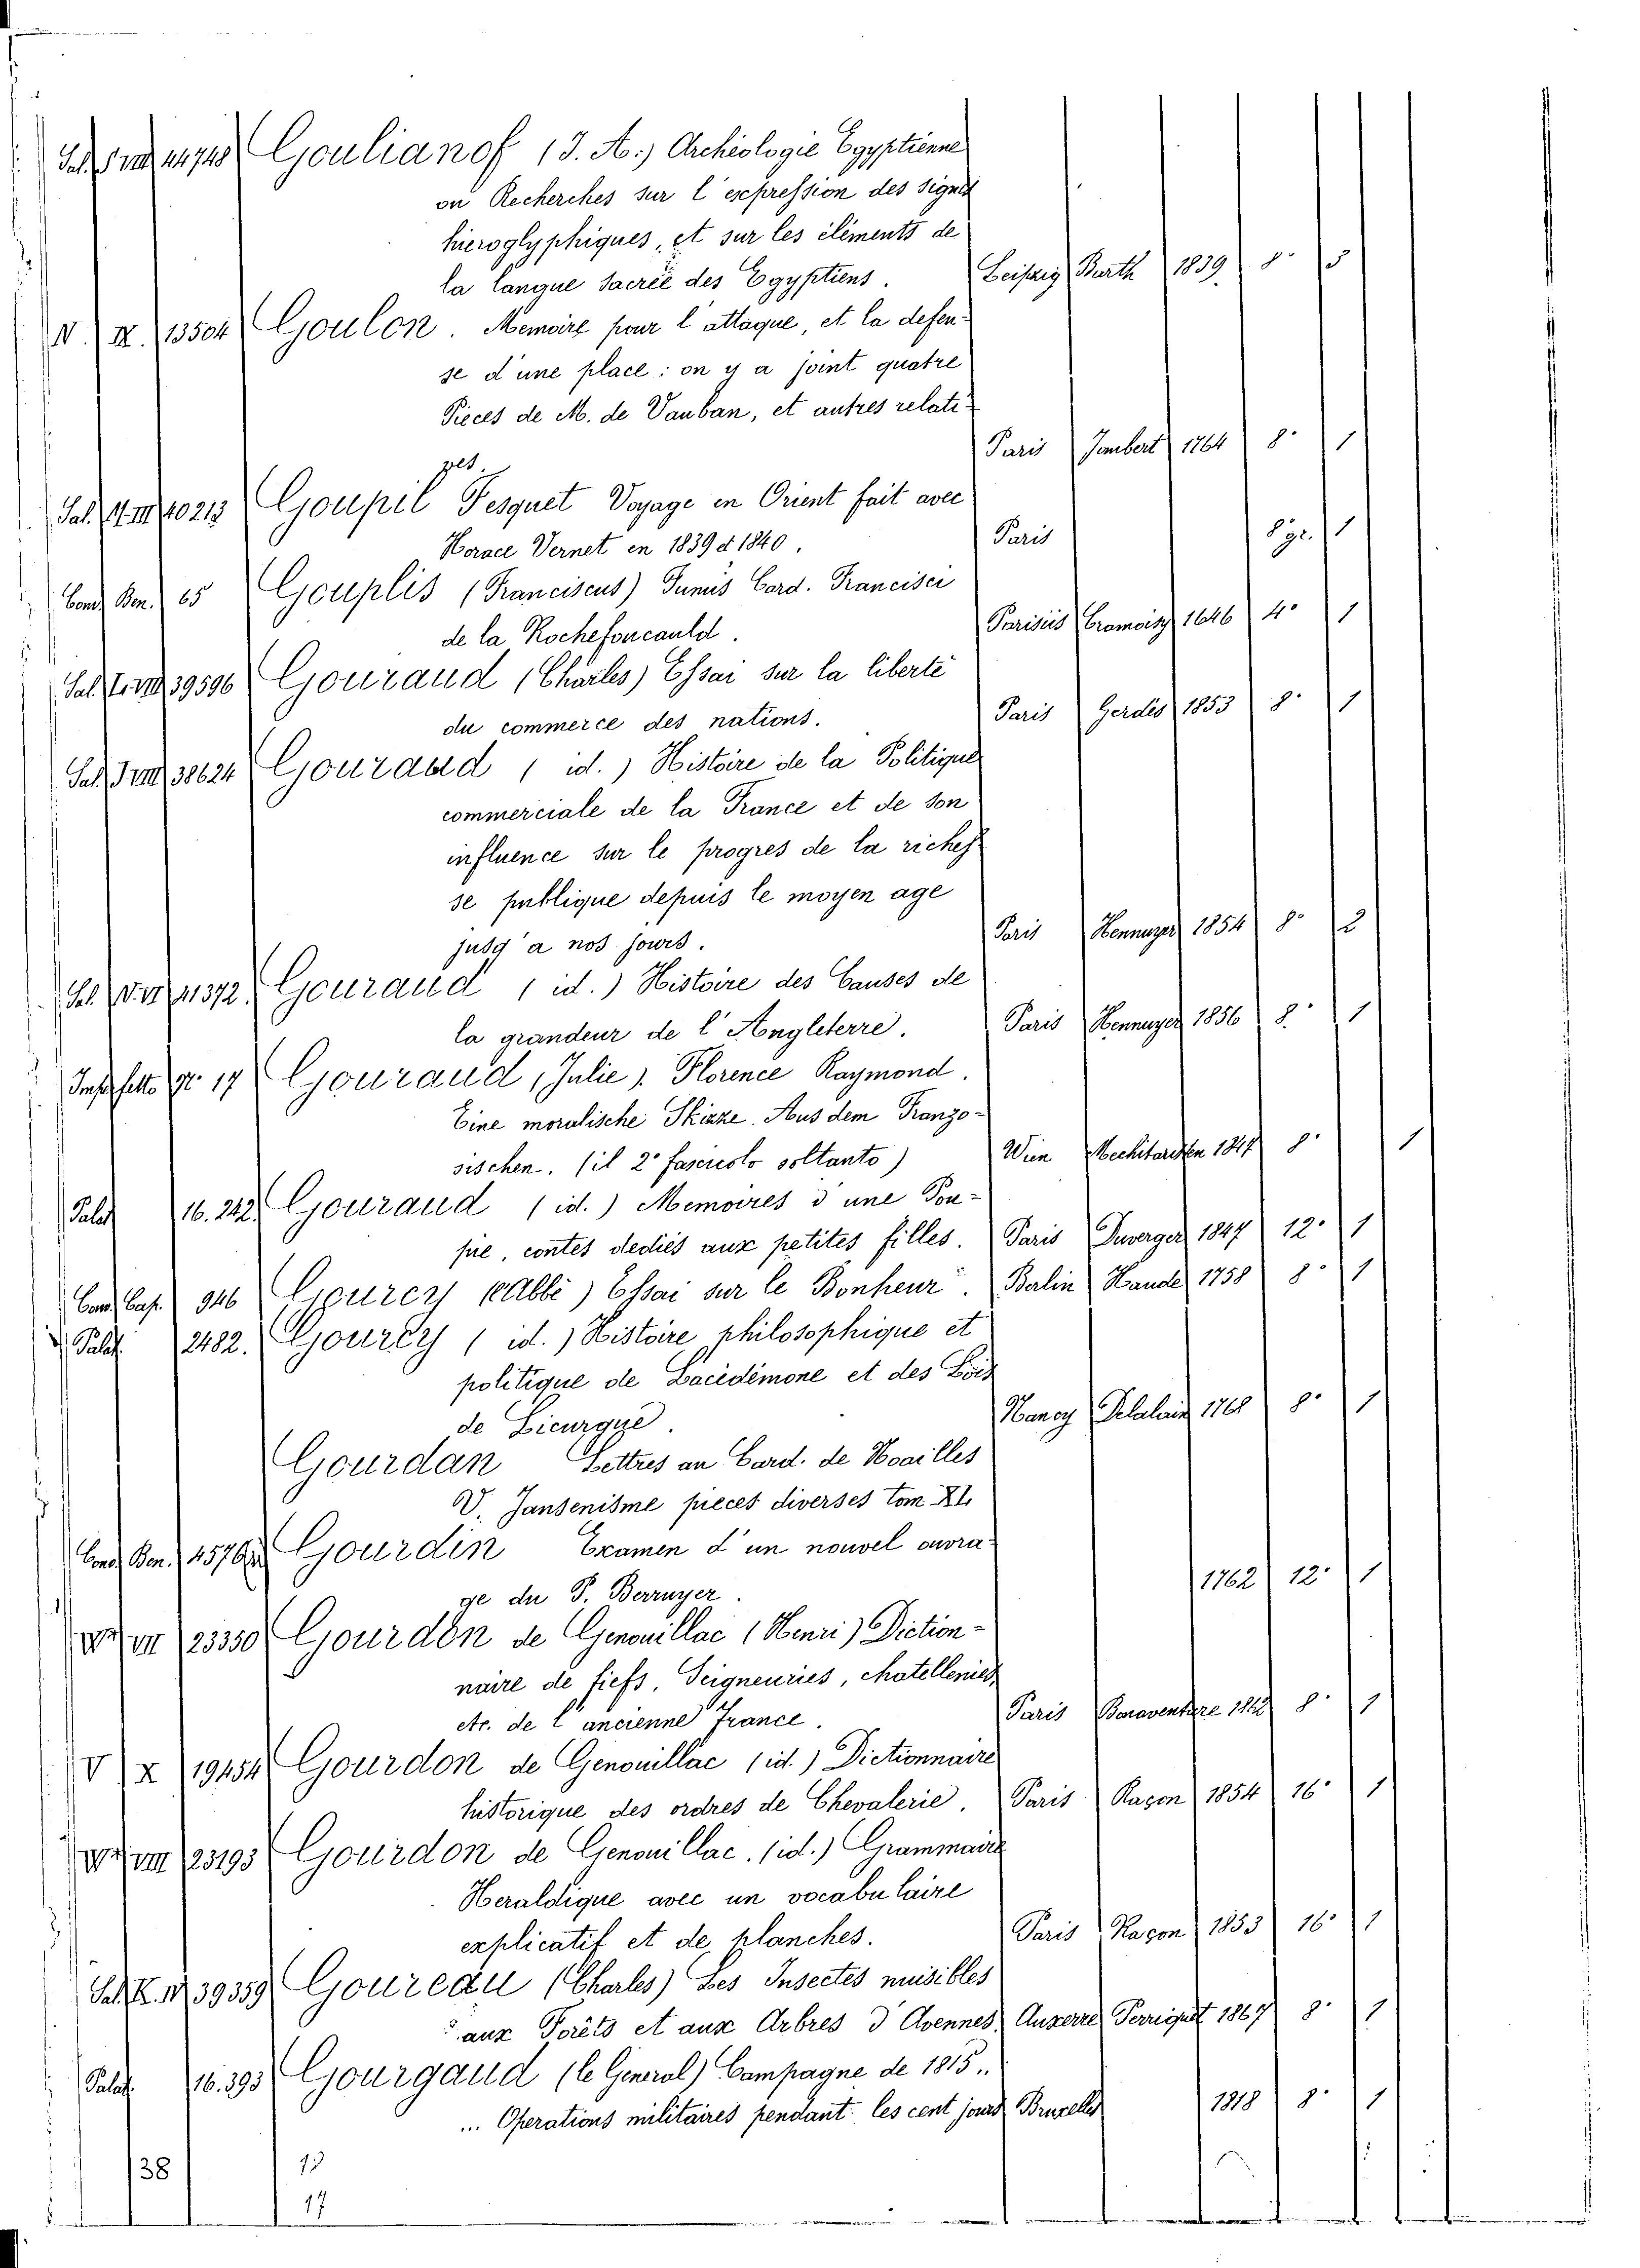 Goulianof (J. A.) Archéologie Egyptienne
ou Recherches sur l'expression des signes
hieroglyphiques, et sur les éléments de
la langue Sacrée des Egyptiens. Leipzig Barth 1839 8° 5
V. X. 13504 Goulon. Memoire pour l'attaque, et la defen-
se d'une place: on y a joint quatre
Pieces de M. de Vauban, et autres relati-
Paris Jombert 1764 8° 1
ves.
Sal. 40213 Goupil Fesquet Voyage en Orient fait avec
Horace Vernet en 1839 et 1840. Paris 8 gr. 1
Cond. Ben. 65 Gouplis (Franciscus) Funus Card. Francisci
de la Rochefoucauld. Parisiis Cramoisy 1646 4° 1
Sal. 39596 Gouraud (Charles) Essai sur la liberté
du commerce des nations. Paris Gerdès 1853 8° 1
Sal. 38624 Gouraud (id.) Histoire de la Politique
commerciale de la France et de son
influence sur le progres de la riches-
se publique depuis le moyen age
jusq'a nos jours. Paris Hennuyer 1854 8° 2
Sal. 41372. Gouraud (id.) Histoire des Causes de
la grandeur de l'Angleterre. Paris Hennuyer 1856 8° 1
17 Gouraud (Julie). Florence Raymond.
Eine moralische Skizze. Aus dem Franzo-
sischen. (il 2° fascicolo soltanto) Wien Mechitaristen 1847 8° 1
Palat. 16.242. Gouraud (id.) Memoires d'une Pou-
pée, contes dediés aux petites filles. Paris Duverger 1847 12° 1
Cond. Cap. 946 Gourcy (Abbé) Essai sur le Bonheur. Berlin Haude 1758 8° 1
Palat. 2482. Gourcy (id.) Histoire philosophique et
politique de Lacédémone et des Lois
de Licurgue. Nancy Delalain 1768 8° 1
Gourdan Lettres au Card. de Noailles
V. Jansenisme pieces diverses tom XI.
Cond. Ben. 4576 Gourdin Examen d'un nouvel ouvra-
ge du P. Berruyer. 1762 12° 1
VIII 23350 Gourdon de Genouillac (Henri) Diction-
naire de fiefs, Seigneuries, chatellenies,
etc. de l'ancienne France. Paris Bonaventure 1862 8° 1
V X 19454 Gourdon de Genouillac (id.) Dictionnaire
historique des ordres de Chevalerie. Paris Raçon 1854 16° 1
VIII 23193 Gourdon de Genouillac. (id.) Grammaire
Heraldique avec un vocabulaire
explicatif et de planches. Paris Raçon 1853 16° 1
Sal. 39359 Goureau (Charles) Les Insectes nuisibles
aux Forêts et aux Arbres d'Avennes. Auxerre Perriquet 1867 8° 1
Palat. 16.393 Gourgaud (le General) Campagne de 1815..
... Operations militaires pendant les cent jours Bruxelles 1818 8° 1
38 13
17